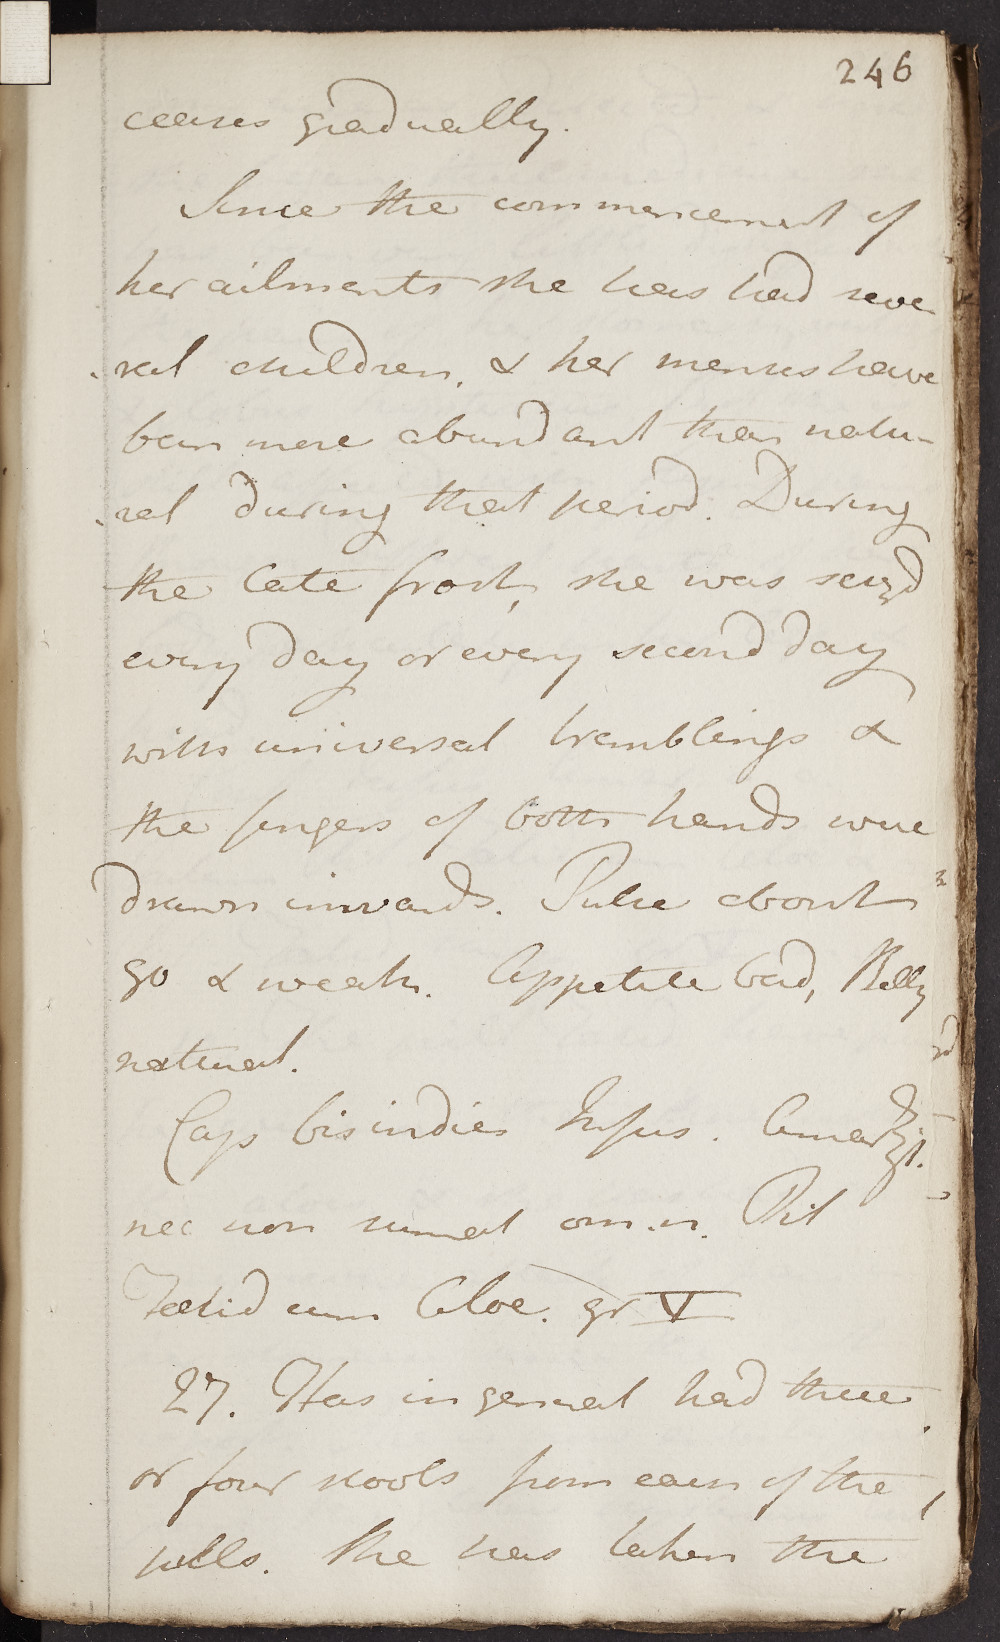 246
ceases gradually.
Since the commencement of
her ailments she has had seve
-ral children, & her menses have
been more abundant than natu-
-ral during that period. During
the late frost, she was seizd
every day or every second day
with universal tremblings &
the fingers of both hands were
drawn inwards. Pulse about
90 & weak. Appetite bad, Belly
natural.
Cap bis indies Infus. Amar ℥ifs.
nec non sumat om. n. Pil
Foetid cum Aloe. gr V
27. Has in general had three
or four stools from each of the
pills. She has taken the